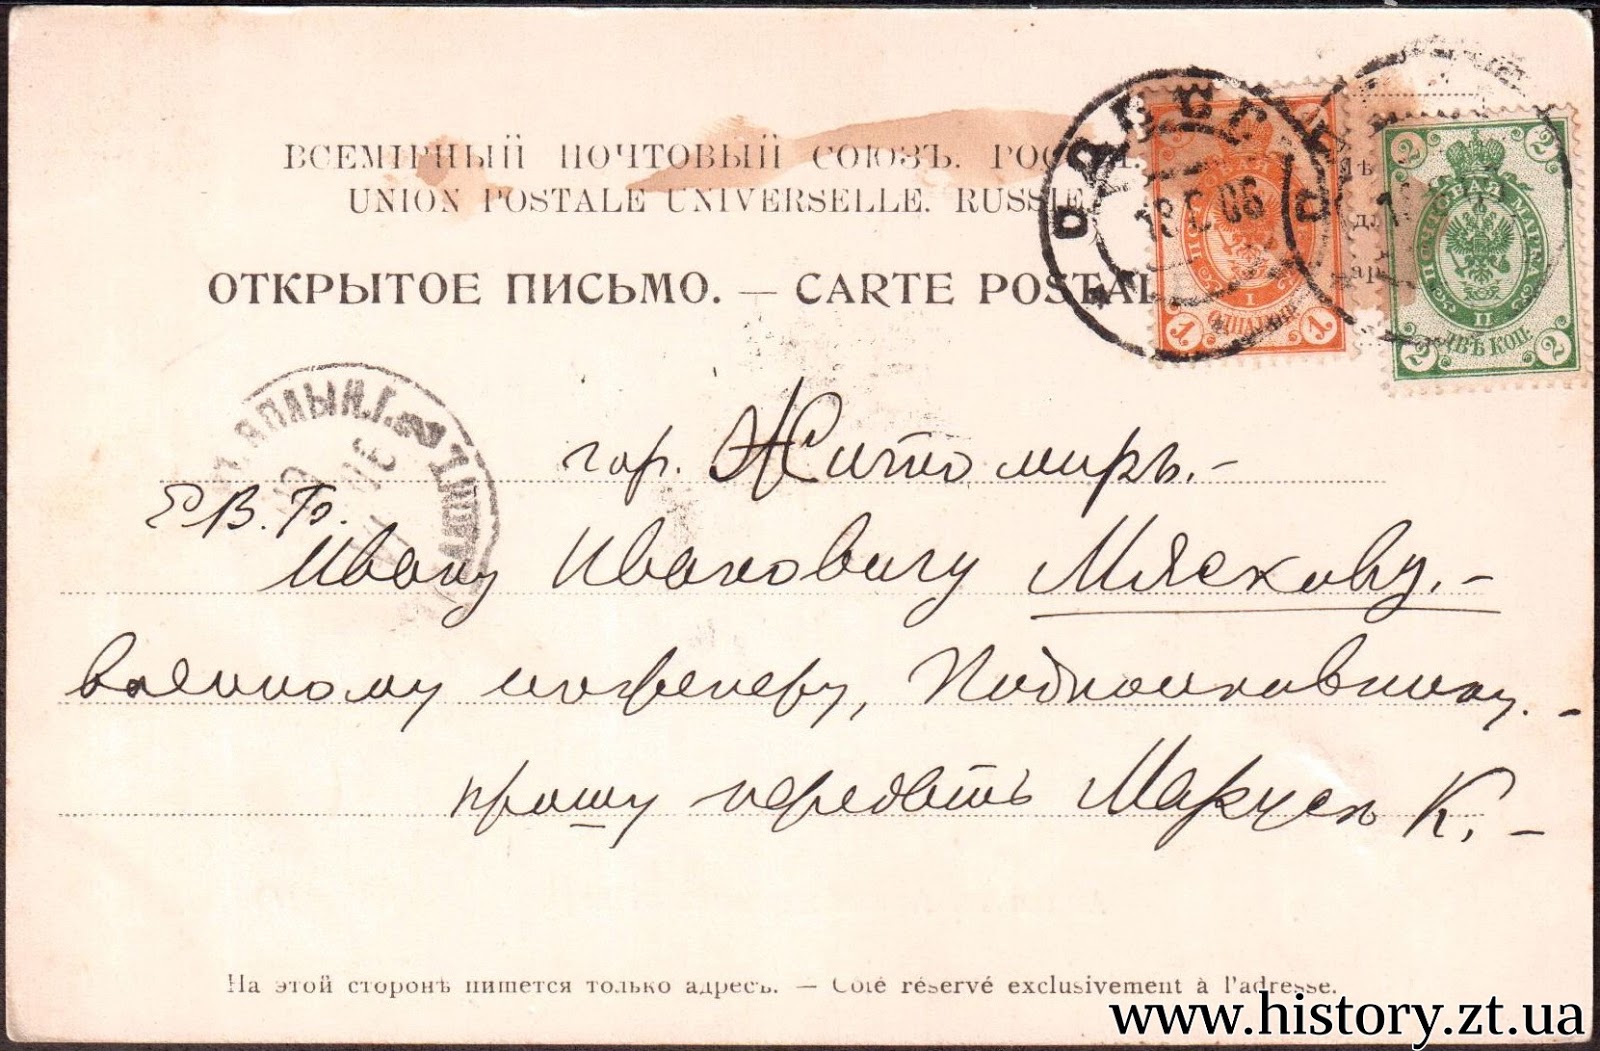 ВСЕМІРНЫЙ ПОЧТОВЫЙ СОЮЗЪ.
UNION POSTALE UNIVERSELLE. RUSSIE
ОТКРЫТОЕ ПИСЬМО. — CARTE POSTAL
ОДЕСС
06
1
I
1
2
2
ПОЧТОВАЯ МАРКА
II
ДВѢ КОП.
2
2
гор. Житомиръ.-
Е В. Б.
Ивану Ивановичу Мяскову.-
военному инженеру, Подполковнику.-
прошу передать Марусѣ К.-
На этой сторонѣ пишется только адресъ. — Côté réservé exclusivement à l'adresse.
www.history.zt.ua